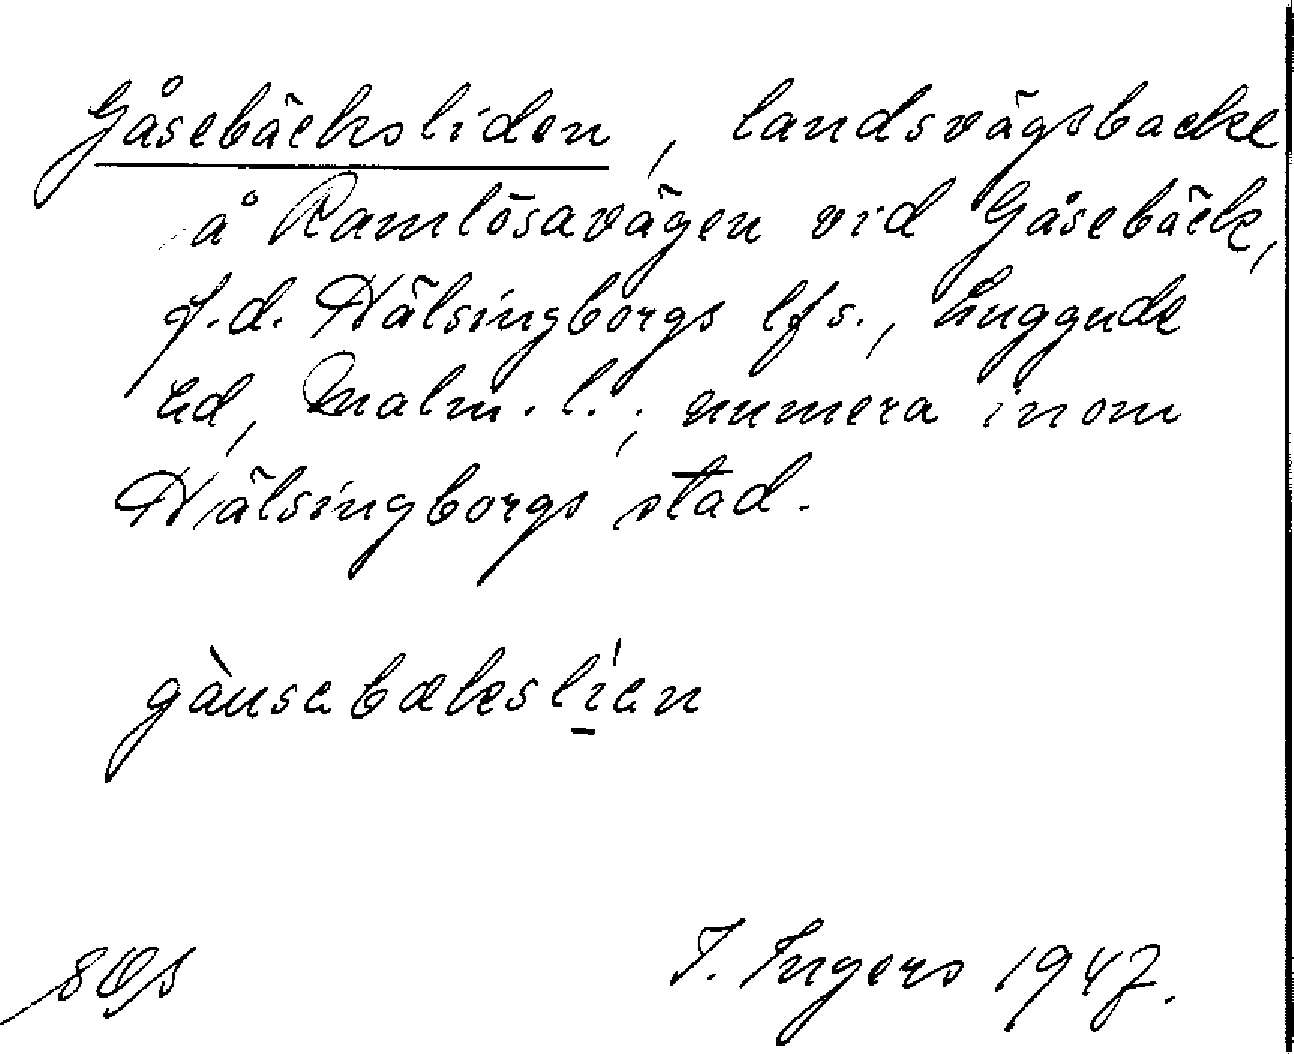 Gåsebäcksliden, landsvägsbacke
å Ramlösavägen vid Gåsebäck,
f.d. Hälsingborgs lfs., Luggude
hd, Malm. l.; numera inom
Hälsingborgs stad.
gàusebækslí̱en
I. Ingers 1947.